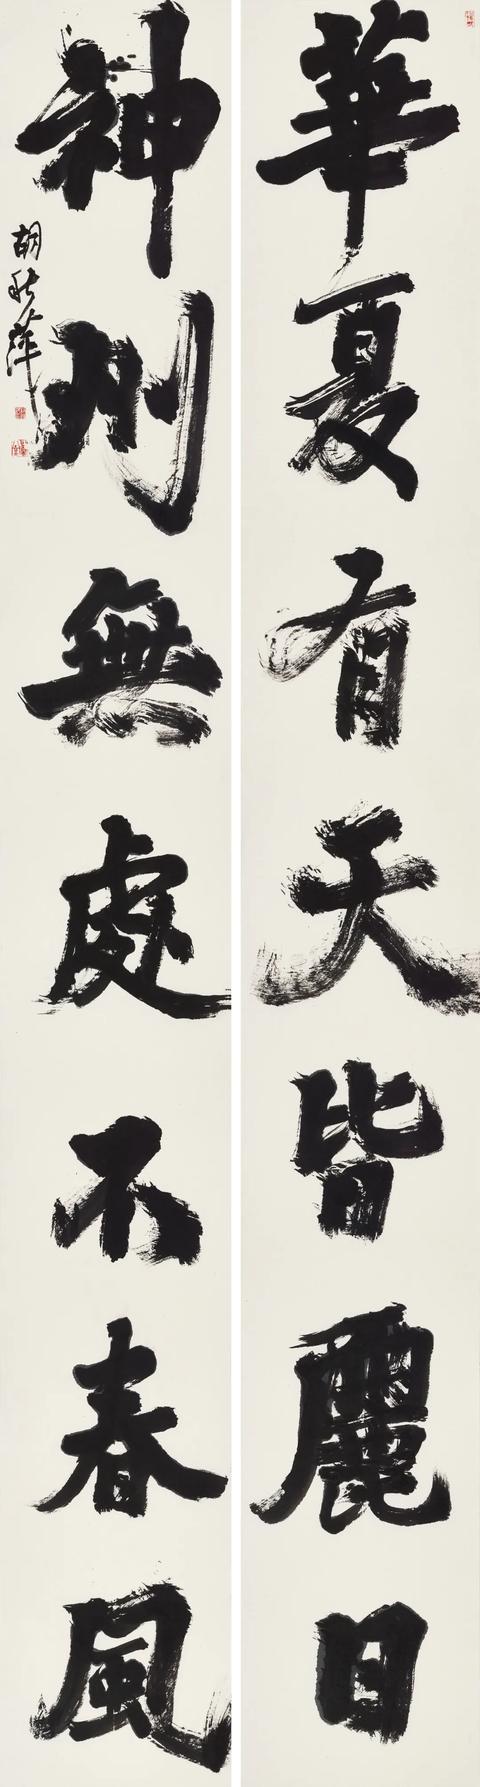 華夏有天皆麗日
神州無處不春風
胡秋萍